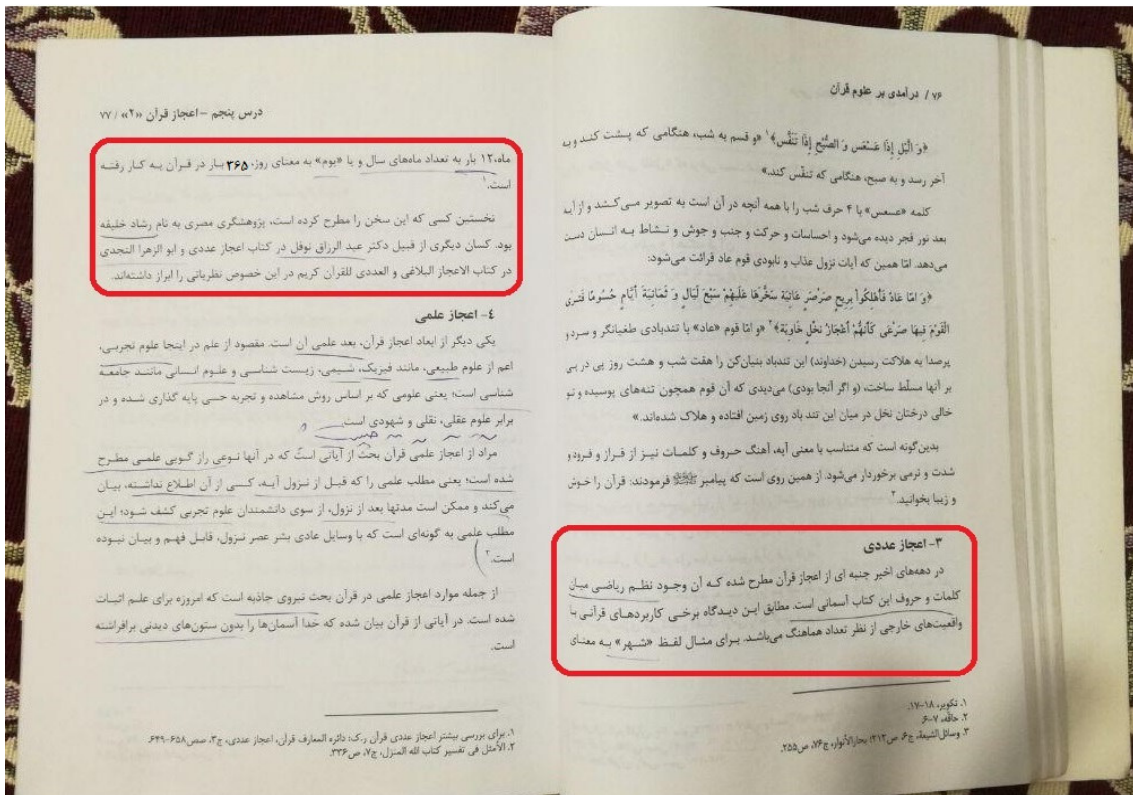 ۷۶ / درآمدی بر علوم قرآن
﴿وَ الَّیْلِ إِذَا عَسْعَسَ وَ الصُّبْحِ إِذَا تَنَفَّسَ﴾۱ «و قسم به شب، هنگامی که پشت کند و به
آخر رسد و به صبح، هنگامی که تنفّس کند.»
کلمه «عسعس» با ۴ حرف شب را با همه آنچه در آن است به تصویر می‌کشد و از آیه
بعد نور فجر دیده می‌شود و احساسات و حرکت و جنب و جوش و نشاط به انسان دست
می‌دهد. امّا همین که آیات نزول عذاب و نابودی قوم عاد قرائت می‌شود:
﴿وَ امّا عَادٌ فَأُهْلِکُواْ بِرِیحٍ صَرْصَرٍ عَاتِیَة سَخَّرَهَا عَلَیْهِمْ سَبْعَ لَیَالٍ وَ ثَمَانِیَةَ أَیَّامٍ حُسُومًا فَتَرَی
الْقَوْمَ فِیهَا صَرْعَی کَأَنَّهُمْ أَعْجَازُ نَخْلٍ خَاوِیَة﴾۲ «و امّا قوم «عاد» با تندبادی طغیانگر و سرد و
پرصدا به هلاکت رسیدن (خداوند) این تندباد بنیان‌کن را هفت شب و هشت روز پی در پی
بر آنها مسلّط ساخت، (و اگر آنجا بودی) می‌دیدی که آن قوم همچون تنه‌های پوسیده و تو
خالی درختان نخل در میان این تند باد روی زمین افتاده و هلاک شده‌اند.»
بدین‌گونه است که متناسب با معنی آیه، آهنگ حروف و کلمات نیز از فراز و فرود و
شدت و نرمی برخوردار می‌شود. از همین روی است که پیامبر ﷺ فرمودند: قرآن را خوش
و زیبا بخوانید.۳
۳- اعجاز عددی
در دهه‌های اخیر جنبه ای از اعجاز قرآن مطرح شده که آن وجود نظم ریاضی میان
کلمات و حروف این کتاب آسمانی است. مطابق این دیدگاه برخی کاربردهای قرآنی با
واقعیت‌های خارجی از نظر تعداد هماهنگ می‌باشد. برای مثال لفظ «شهر» به معنای
۱. تکویر، ۱۸-۱۷.
۲. حاقّه، ۷-۶.
۳. وسائل‌الشیعة، ج۶، ص۲۱۲؛ بحارالأنوار، ج۷۶، ص۲۵۵.
درس پنجم –اعجاز قرآن «۲» / ۷۷
ماه، ۱۲ بار به تعداد ماه‌های سال و یا «یوم» به معنای روز، ۳۶۵ بار در قرآن به کار رفته
است.۱
نخستین کسی که این سخن را مطرح کرده است، پژوهشگری مصری به نام رشاد خلیفه
بود. کسان دیگری از قبیل دکتر عبد الرزاق نوفل در کتاب اعجاز عددی و ابو الزهرا النجدی
در کتاب الاعجاز البلاغی و العددی للقرآن کریم در این خصوص نظریاتی را ابراز داشته‌اند.
٤- اعجاز علمی
یکی دیگر از ابعاد اعجاز قرآن، بعد علمی آن است. مقصود از علم در اینجا علوم تجربی،
اعم از علوم طبیعی، مانند فیزیک، شیمی، زیست شناسی و علوم انسانی مانند جامعه
شناسی است؛ یعنی علومی که بر اساس روش مشاهده و تجربه حسی پایه گذاری شده و در
برابر علوم عقلی، نقلی و شهودی است.
مراد از اعجاز علمی قرآن بحث از آیاتی است که در آنها نوعی راز گویی علمی مطرح
شده است؛ یعنی مطلب علمی را که قبل از نزول آیه، کسی از آن اطلاع نداشته، بیان
می‌کند و ممکن است مدتها بعد از نزول، از سوی دانشمندان علوم تجربی کشف شود؛ این
مطلب علمی به گونه‌ای است که با وسایل عادی بشر عصر نزول، قابل فهم و بیان نبوده
است.۲
از جمله موارد اعجاز علمی در قرآن بحث نیروی جاذبه است که امروزه برای علم اثبات
شده است. در آیاتی از قرآن بیان شده که خدا آسمان‌ها را بدون ستون‌های دیدنی برافراشته
است.
۱. برای بررسی بیشتر اعجاز عددی قرآن ر.ک: دائره المعارف قرآن، اعجاز عددی، ج۳، صص۶۵۸-۶۴۹.
۲. الأمثل فی تفسیر کتاب الله المنزل، ج۷، ص۳۳۶.